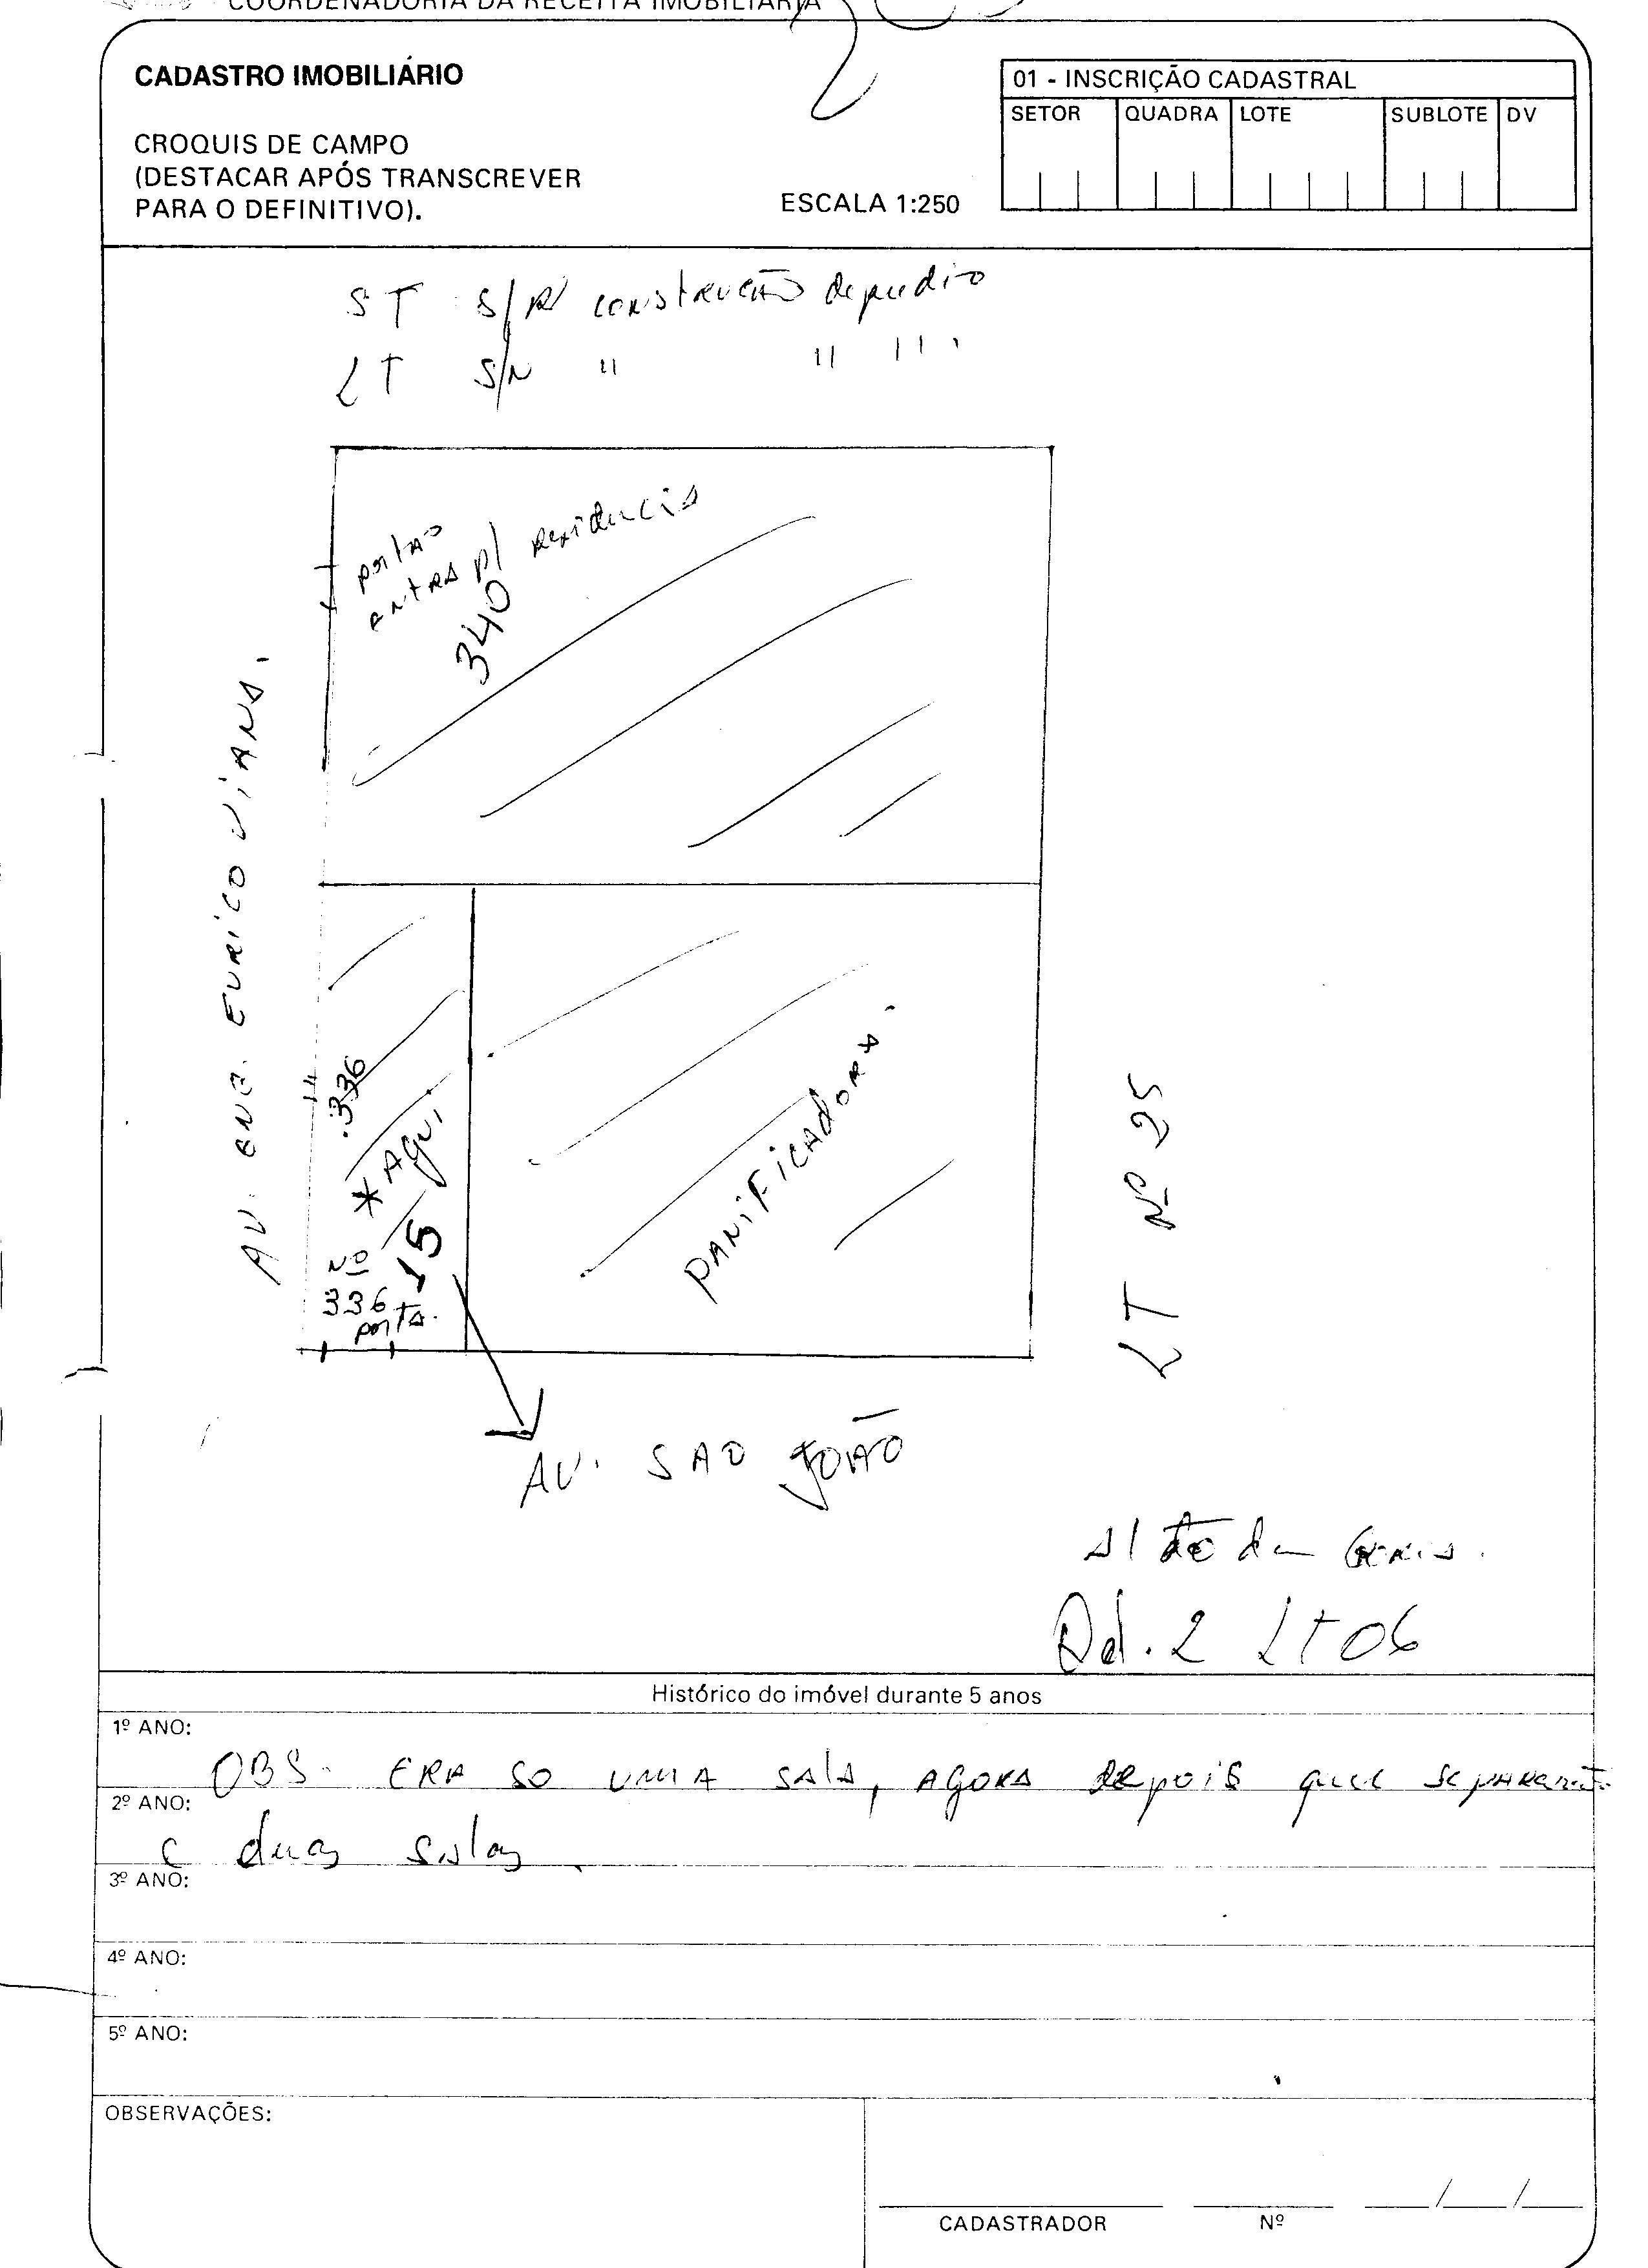 COORDENADORIA DA RECEITA IMOBILIÁRIA
CADASTRO IMOBILIÁRIO
CROQUIS DE CAMPO
(DESTACAR APÓS TRANSCREVER
PARA O DEFINITIVO).
ESCALA 1:250
01 - INSCRIÇÃO CADASTRAL
SETOR QUADRA LOTE SUBLOTE DV
S/N construcão de predio
LT S/N " " "
portao
entra p/ residencia
340
AV. ENG. EURICO VIANA.
.336
* AQui
15
Nº
336
porta.
PANiFiCAdoRA.
LT Nº 25
AV. SAO JOÃO
Qd. 2 LT 06
Histórico do imóvel durante 5 anos
1º ANO:
OBS. ERA SO UMA SALA, AGORA depois que separaram
2º ANO:
é duas salas.
3º ANO:
4º ANO:
5º ANO:
OBSERVAÇÕES:
CADASTRADOR Nº